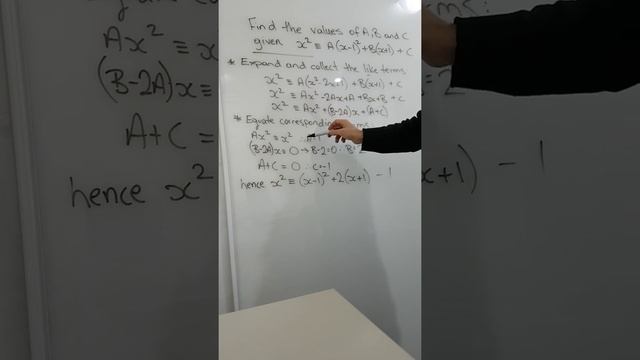 Find the values of A, B and C
given x² ≡ A(x-1)² + B(x+1) + C
* Expand and collect the like terms
x² ≡ A(x²-2x+1) + B(x+1) + C
x² ≡ Ax²-2Ax+A + Bx+B + C
x² ≡ Ax² + (B-2A)x + (A+C)
* Equate corresponding
Ax² = x²
(B-2A)x = 0 → B-2=0 ∴ B=2
A+C = 0 ∴ C=-1
hence x² ≡ (x-1)² + 2(x+1) - 1